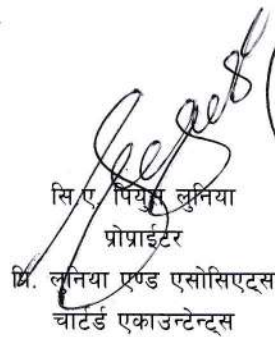 सि.ए. पियुस लुनिया
प्रोप्राईटर
पि. लुनिया एण्ड एसोसिएट्स
चार्टर्ड एकाउन्टेन्ट्स